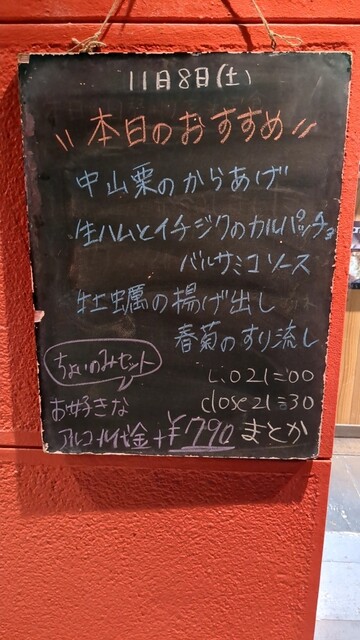 11月8日(土)
〃本日のおすすめ〃
中山栗のからあげ
生ハムとイチジクのカルパッチョ
バルサミコソース
牡蠣の揚げ出し
春菊のすり流し
ちょいのみセット
L.O 21=00
お好きな
close 21=30
アルコール代金+¥790
まとか